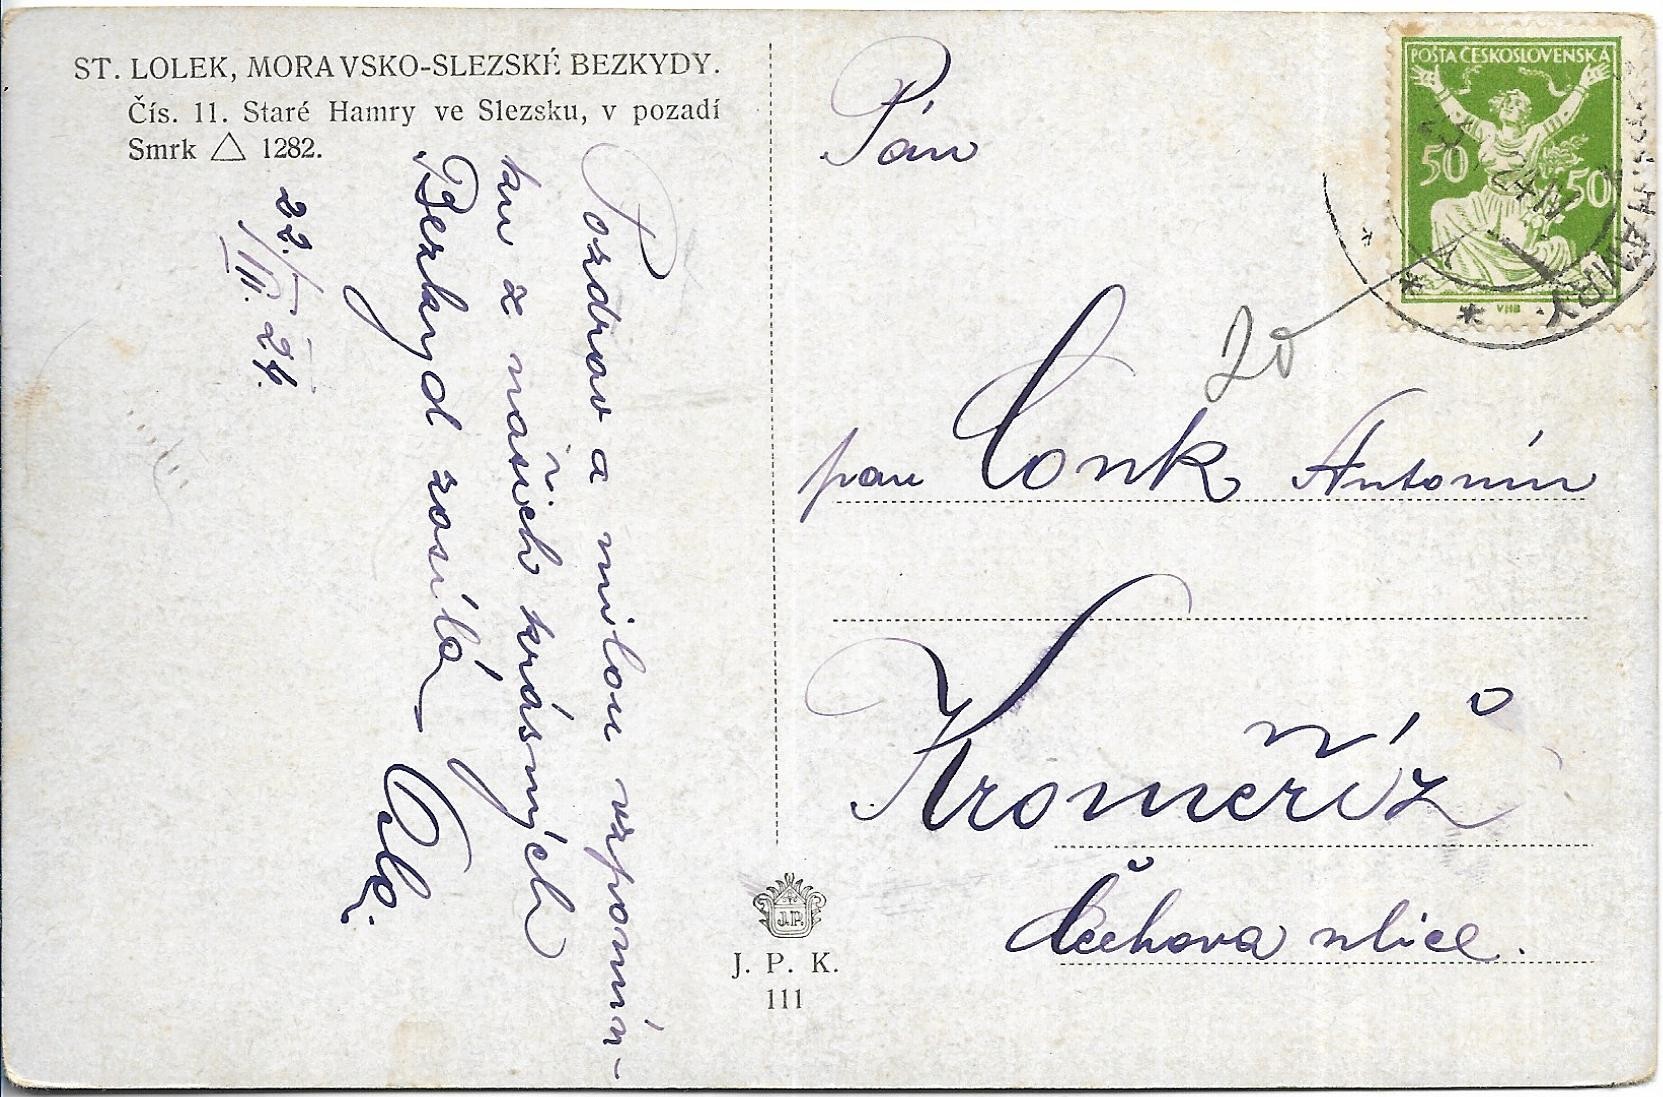 ST. LOLEK, MORAVSKO-SLEZSKÉ BEZKYDY.
Čís. 11. Staré Hamry ve Slezsku, v pozadí
Smrk △ 1282.
Pozdrav a milou vzpomín-
ku z našich krásných
Bezkyd zasílá
22./III. 24.
J. P.
J. P. K.
111
POŠTA ČESKOSLOVENSKÁ
50 50
VHB
HAMRY
20
Pán
pan Conk Antonín
Kroměříž
Čechova ulice.